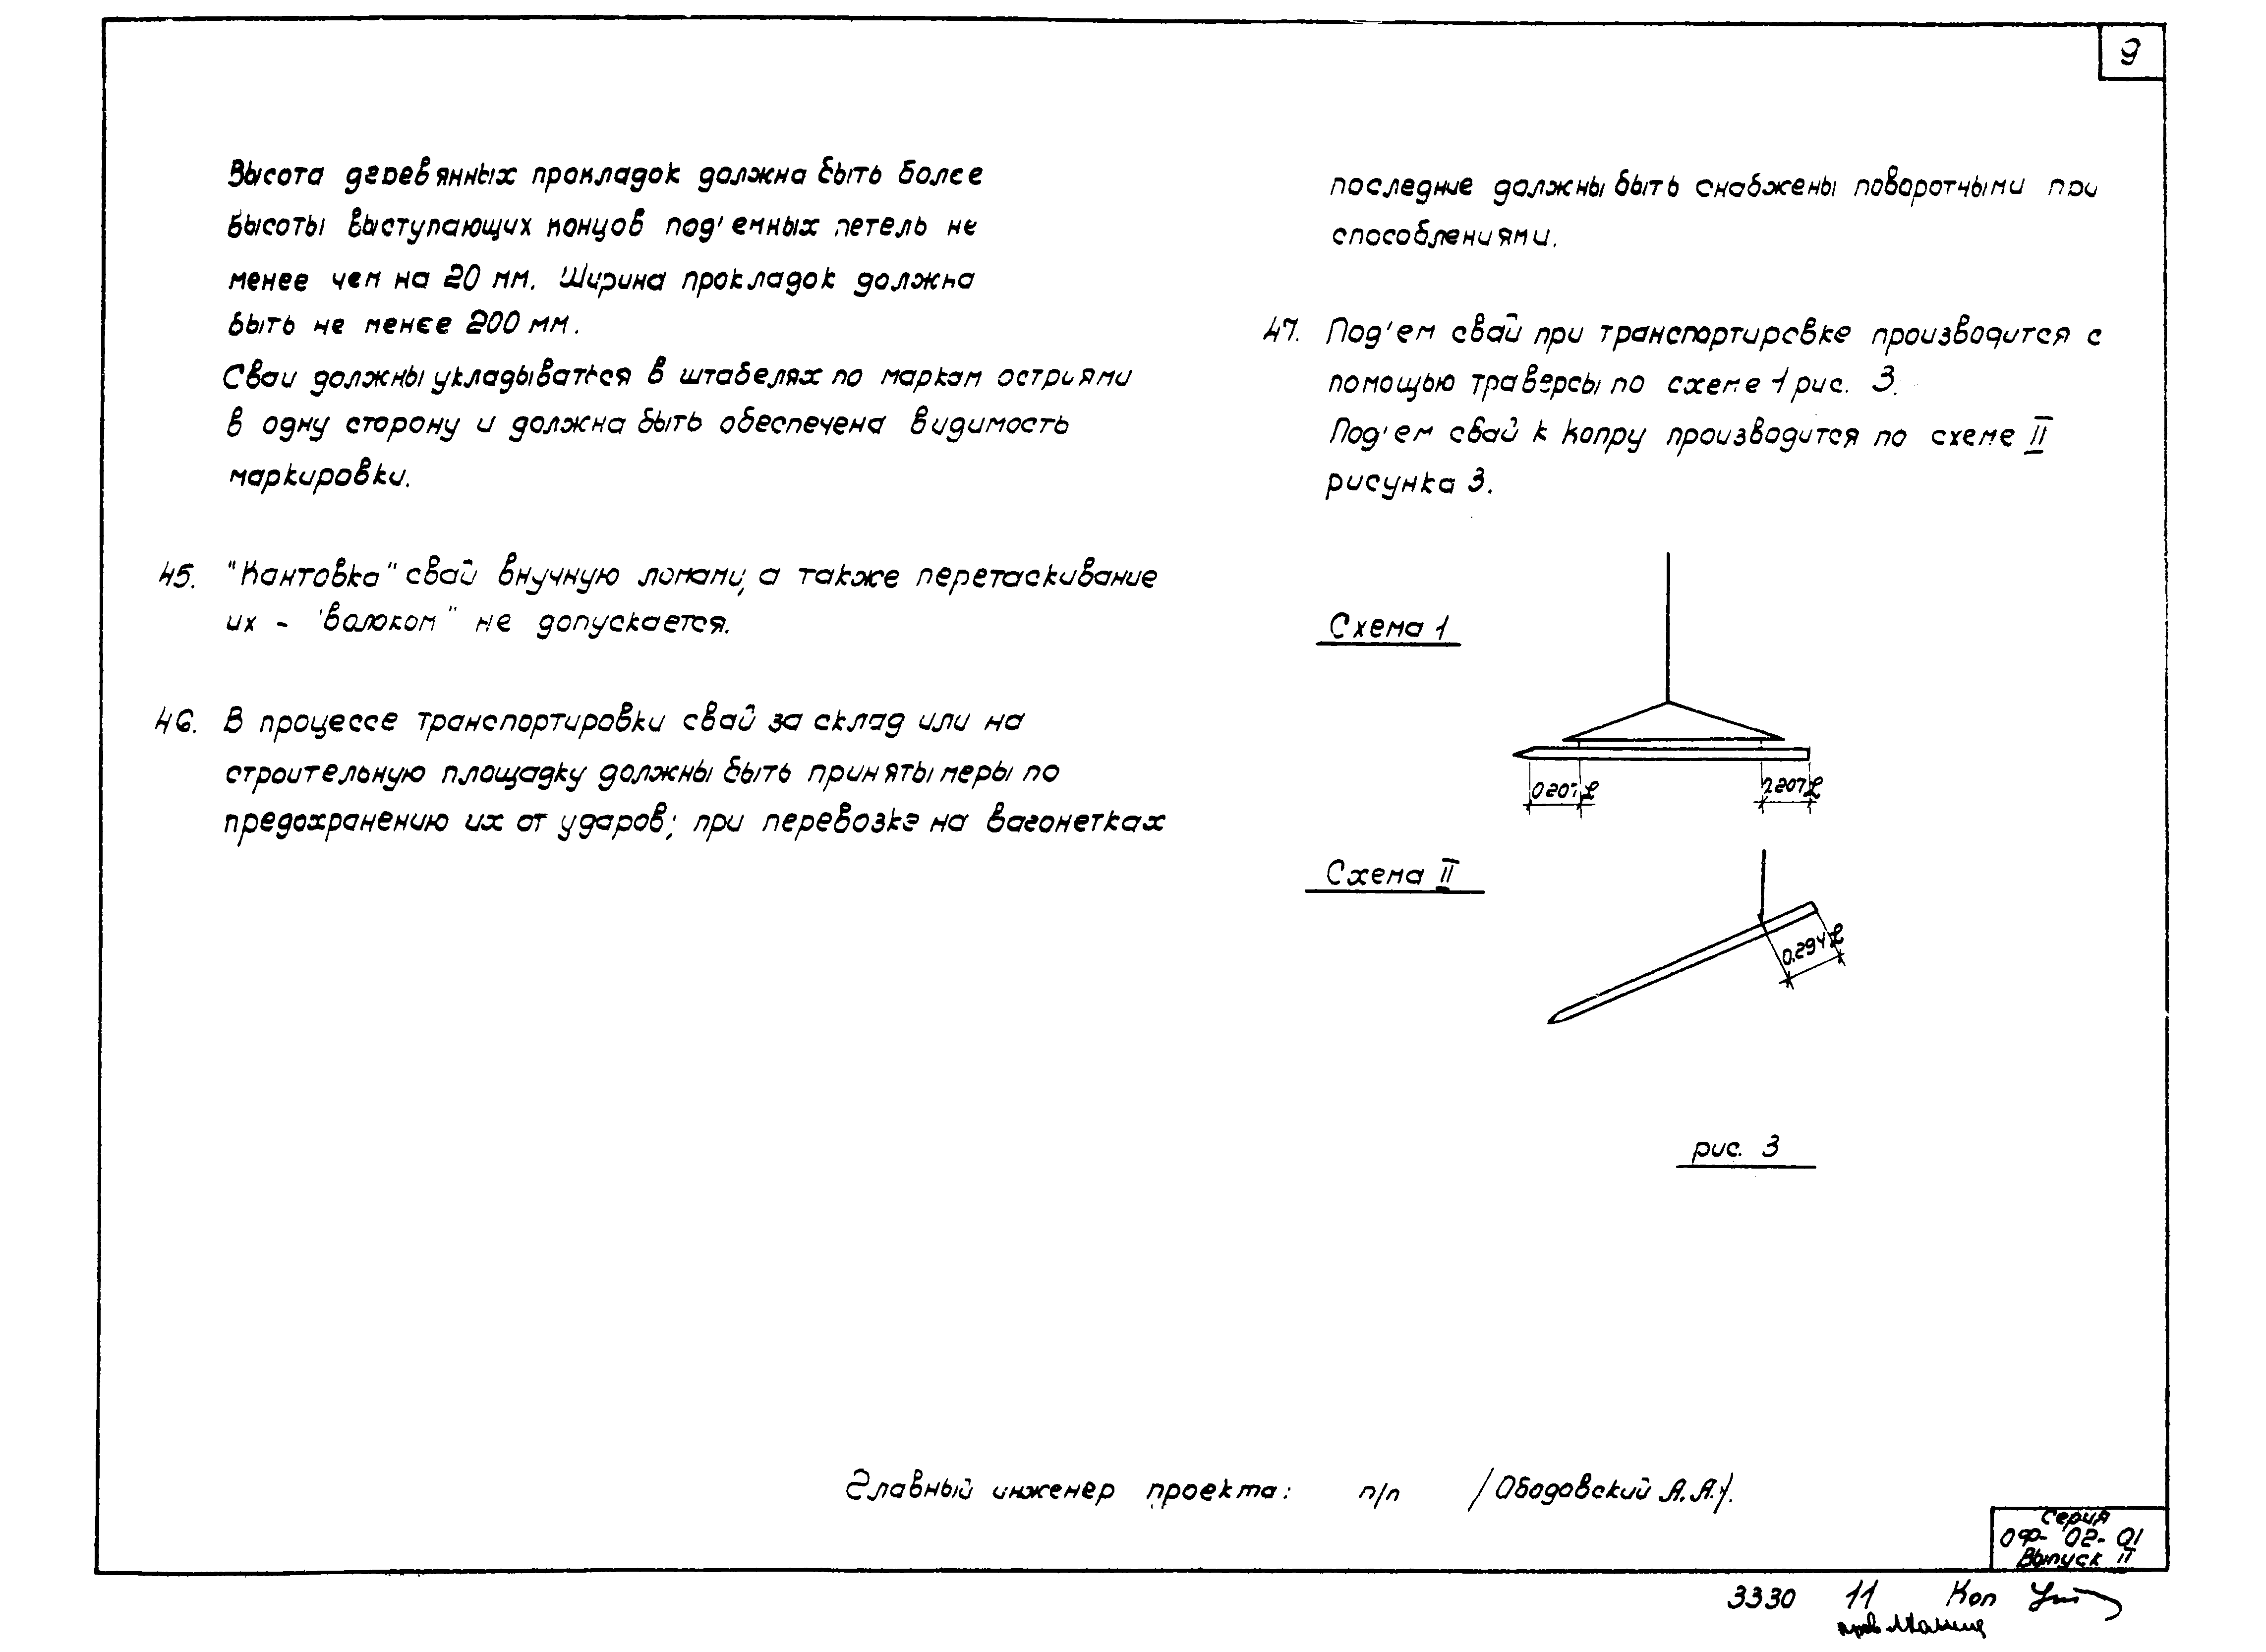 9
Высота деревянных прокладок должна быть более
высоты выступающих концов под'емных петель не
менее чем на 20 мм. Ширина прокладок должна
быть не менее 200 мм.
Сваи должны укладываться в штабелях по маркам остриями
в одну сторону и должна быть обеспечена видимость
маркировки.
45. "Кантовка" свай внучную ломами, а также перетаскивание
их - "волоком" не допускается.
46. В процессе транспортировки свай за склад или на
строительную площадку должны быть приняты меры по
предохранению их от ударов; при перевозке на вагонетках
последние должны быть снабжены поворотными при
способлениями.
47. Под'ем свай при транспортировке производится с
помощью траверсы по схеме 1 рис. 3.
Под'ем свай к копру производится по схеме II
рисунка 3.
Схема 1
0.207 L
0.207 L
Схема II
0.294 L
рис. 3
Главный инженер проекта: п/п /Ободовский А.А./.
Серия
ОФ-02-01
Выпуск II
3330 11 Коп